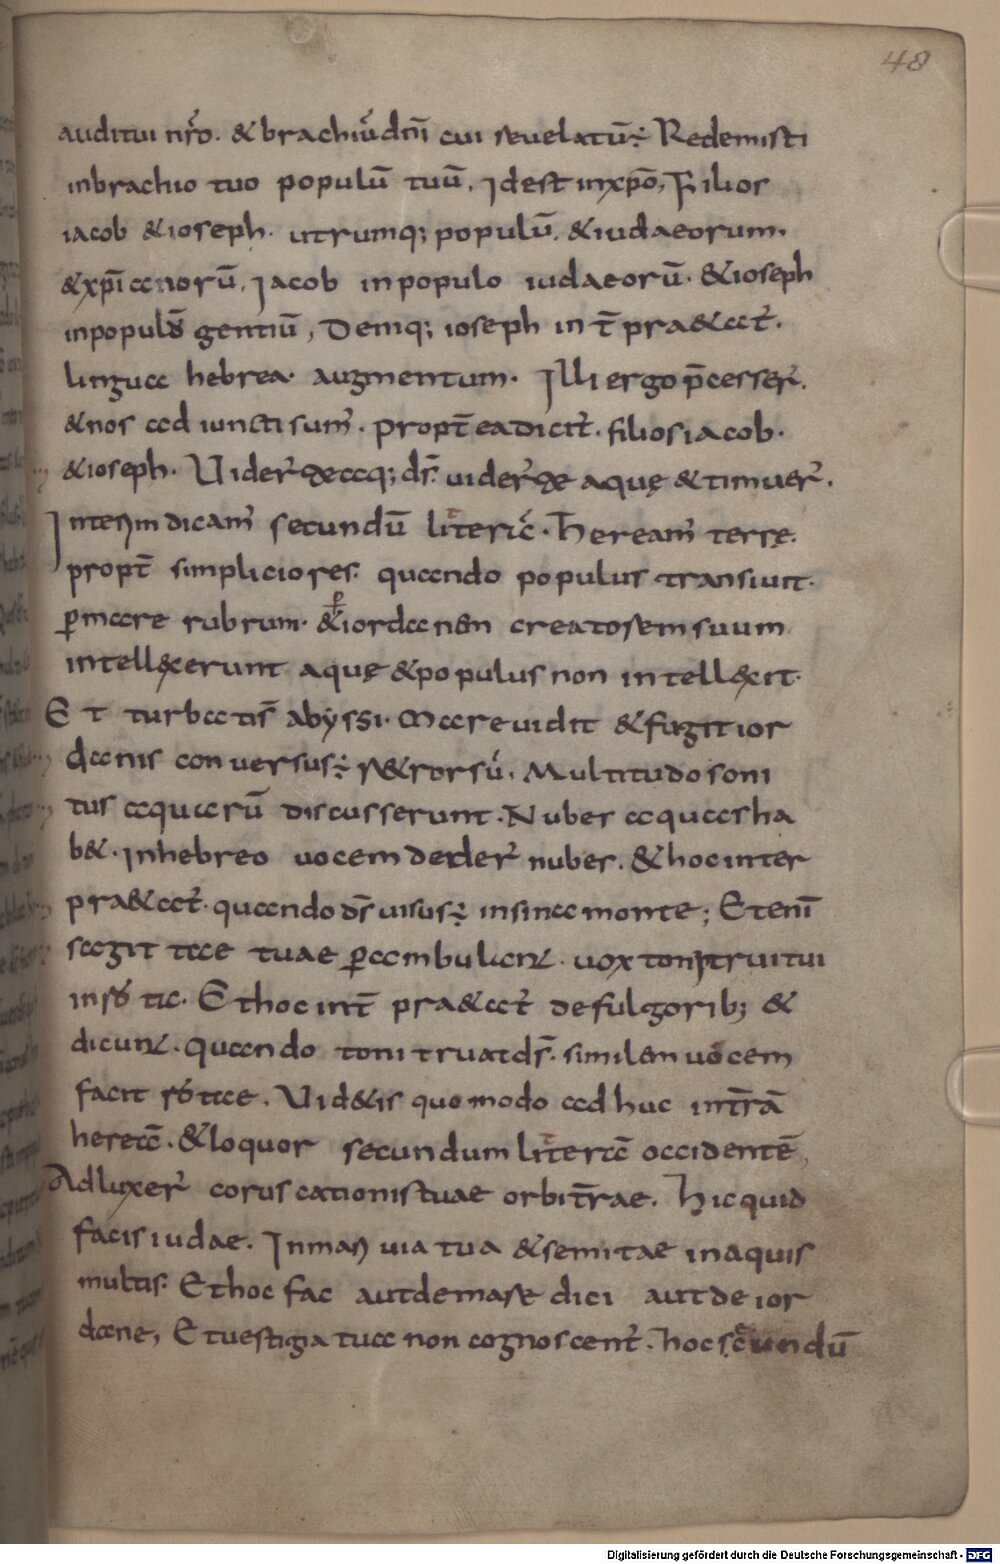 48
auditui nr̄o. & brachiū dn̄i cui reuelatū; Redemisti
inbrachio tuo populū tuū, Idest inxp̄o, Filios
iacob & ioseph. utrumq; populū, & iudaeorum.
& xp̄ianorū, Iacob inpopulo iudaeorū. & ioseph
inpopulo gentiū, Deniq; ioseph int̄ pra&at̄.
lingua hebrea. augmentum. Illi ergo p̄cesser̄.
& nos adiuncti sum̄. propt̄ ea dicit̄. filios iacob.
& ioseph. Uider̄ te aquę; ds̄. uider̄ te aquę & timuer̄.
Interim dicam̄ secundū litterā. Heream̄ terrę.
propt̄ simpliciores. quando populus transiuit.
p̄ mare rubrum. & p̄ iordanen creatorem suum
intell&xerunt aquę & populus non intell&xit.
Et turbatis̄ abyssi. Mare uidit & fugit ior
danis conuersus; r&rorsū. Multitudo soni
tus aquarū discusserunt. Nubes aquas ha
b&. Inhebreo uocem deder̄ nubes. & hoc inter
pra&at̄. quando ds̄ uisus; in sina monte; Etenī
sagit tae tuae p̄ambulant. uox tonitrui tui
in rota. Et hoc int̄ pra&at̄ de fulgorib; &
dicunt. quando toni truat ds̄. similem uocem
facit rotae. Uid&is quomodo adhuc interrā
heret̄. & loquor secundum litterā occidentē,
Adluxer̄ coruscationis tuae orbi t̄rae. Hic quid
facis iudae. In mari uia tua & semitae in aquis
multis. Et hoc fac aut de mare dici aut de ior
dane, Et uestigia tua non cognoscent̄. hoc scdundū
Digitalisierung gefördert durch die Deutsche Forschungsgemeinschaft - DFG